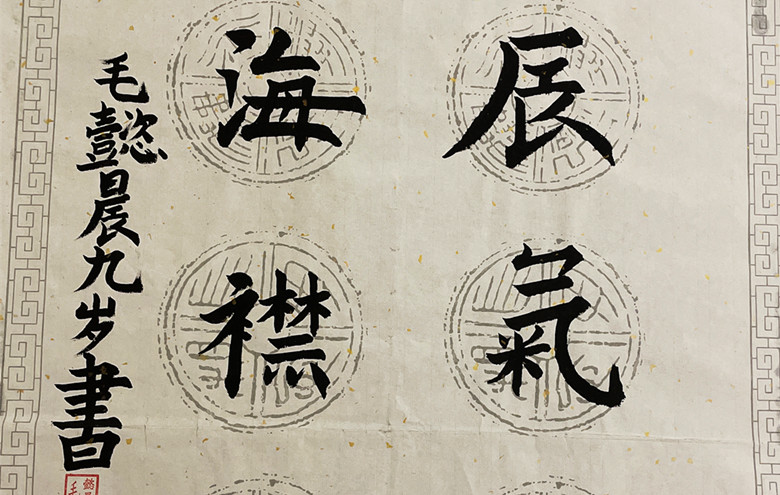 辰氣
海襟
毛懿晨九岁書